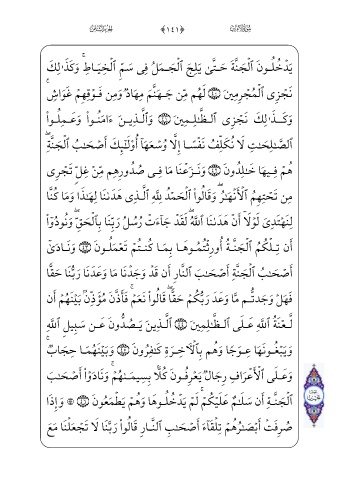 يَدْخُلُونَ ٱلْجَنَّةَ حَتَّىٰ يَلِجَ ٱلْجَمَلُ فِى سَمِّ ٱلْخِيَاطِ ۚ وَكَذَٰلِكَ
نَجْزِى ٱلْمُجْرِمِينَ ۝ لَهُم مِّن جَهَنَّمَ مِهَادٌ وَمِن فَوْقِهِمْ غَوَاشٍ ۚ
وَكَذَٰلِكَ نَجْزِى ٱلظَّـٰلِمِينَ ۝ وَٱلَّذِينَ ءَامَنُوا۟ وَعَمِلُوا۟
ٱلصَّـٰلِحَـٰتِ لَا نُكَلِّفُ نَفْسًا إِلَّا وُسْعَهَآ أُو۟لَـٰٓئِكَ أَصْحَـٰبُ ٱلْجَنَّةِ ۖ
هُمْ فِيهَا خَـٰلِدُونَ ۝ وَنَزَعْنَا مَا فِى صُدُورِهِم مِّنْ غِلٍّ تَجْرِى
مِن تَحْتِهِمُ ٱلْأَنْهَـٰرُ ۖ وَقَالُوا۟ ٱلْحَمْدُ لِلَّهِ ٱلَّذِى هَدَىٰنَا لِهَـٰذَا وَمَا كُنَّا
لِنَهْتَدِىَ لَوْلَآ أَنْ هَدَىٰنَا ٱللَّهُ ۖ لَقَدْ جَآءَتْ رُسُلُ رَبِّنَا بِٱلْحَقِّ ۖ وَنُودُوٓا۟
أَن تِلْكُمُ ٱلْجَنَّةُ أُورِثْتُمُوهَا بِمَا كُنتُمْ تَعْمَلُونَ ۝ وَنَادَىٰٓ
أَصْحَـٰبُ ٱلْجَنَّةِ أَصْحَـٰبَ ٱلنَّارِ أَن قَدْ وَجَدْنَا مَا وَعَدَنَا رَبُّنَا حَقًّا
فَهَلْ وَجَدتُّم مَّا وَعَدَ رَبُّكُمْ حَقًّا ۖ قَالُوا۟ نَعَمْ ۚ فَأَذَّنَ مُؤَذِّنٌۢ بَيْنَهُمْ أَن
لَّعْنَةُ ٱللَّهِ عَلَى ٱلظَّـٰلِمِينَ ۝ ٱلَّذِينَ يَصُدُّونَ عَن سَبِيلِ ٱللَّهِ
وَيَبْغُونَهَا عِوَجًا وَهُم بِٱلْـَٔاخِرَةِ كَـٰفِرُونَ ۝ وَبَيْنَهُمَا حِجَابٌ ۚ
وَعَلَى ٱلْأَعْرَافِ رِجَالٌ يَعْرِفُونَ كُلًّۢا بِسِيمَىٰهُمْ ۚ وَنَادَوْا۟ أَصْحَـٰبَ
ٱلْجَنَّةِ أَن سَلَـٰمٌ عَلَيْكُمْ ۚ لَمْ يَدْخُلُوهَا وَهُمْ يَطْمَعُونَ ۝ ۞ وَإِذَا
صُرِفَتْ أَبْصَـٰرُهُمْ تِلْقَآءَ أَصْحَـٰبِ ٱلنَّارِ قَالُوا۟ رَبَّنَا لَا تَجْعَلْنَا مَعَ